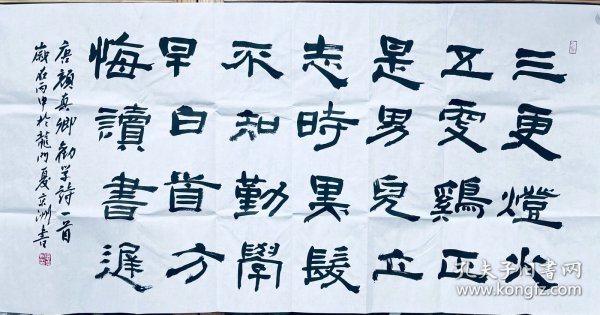 三更燈火
五更鷄正
是男兒立
志時黑髮
不知勤學
早白首方
悔讀書遲
唐顏真卿勸学詩一首
歲在丙申於龍門夏洲書
孔夫子旧书网
www.kongfz.com